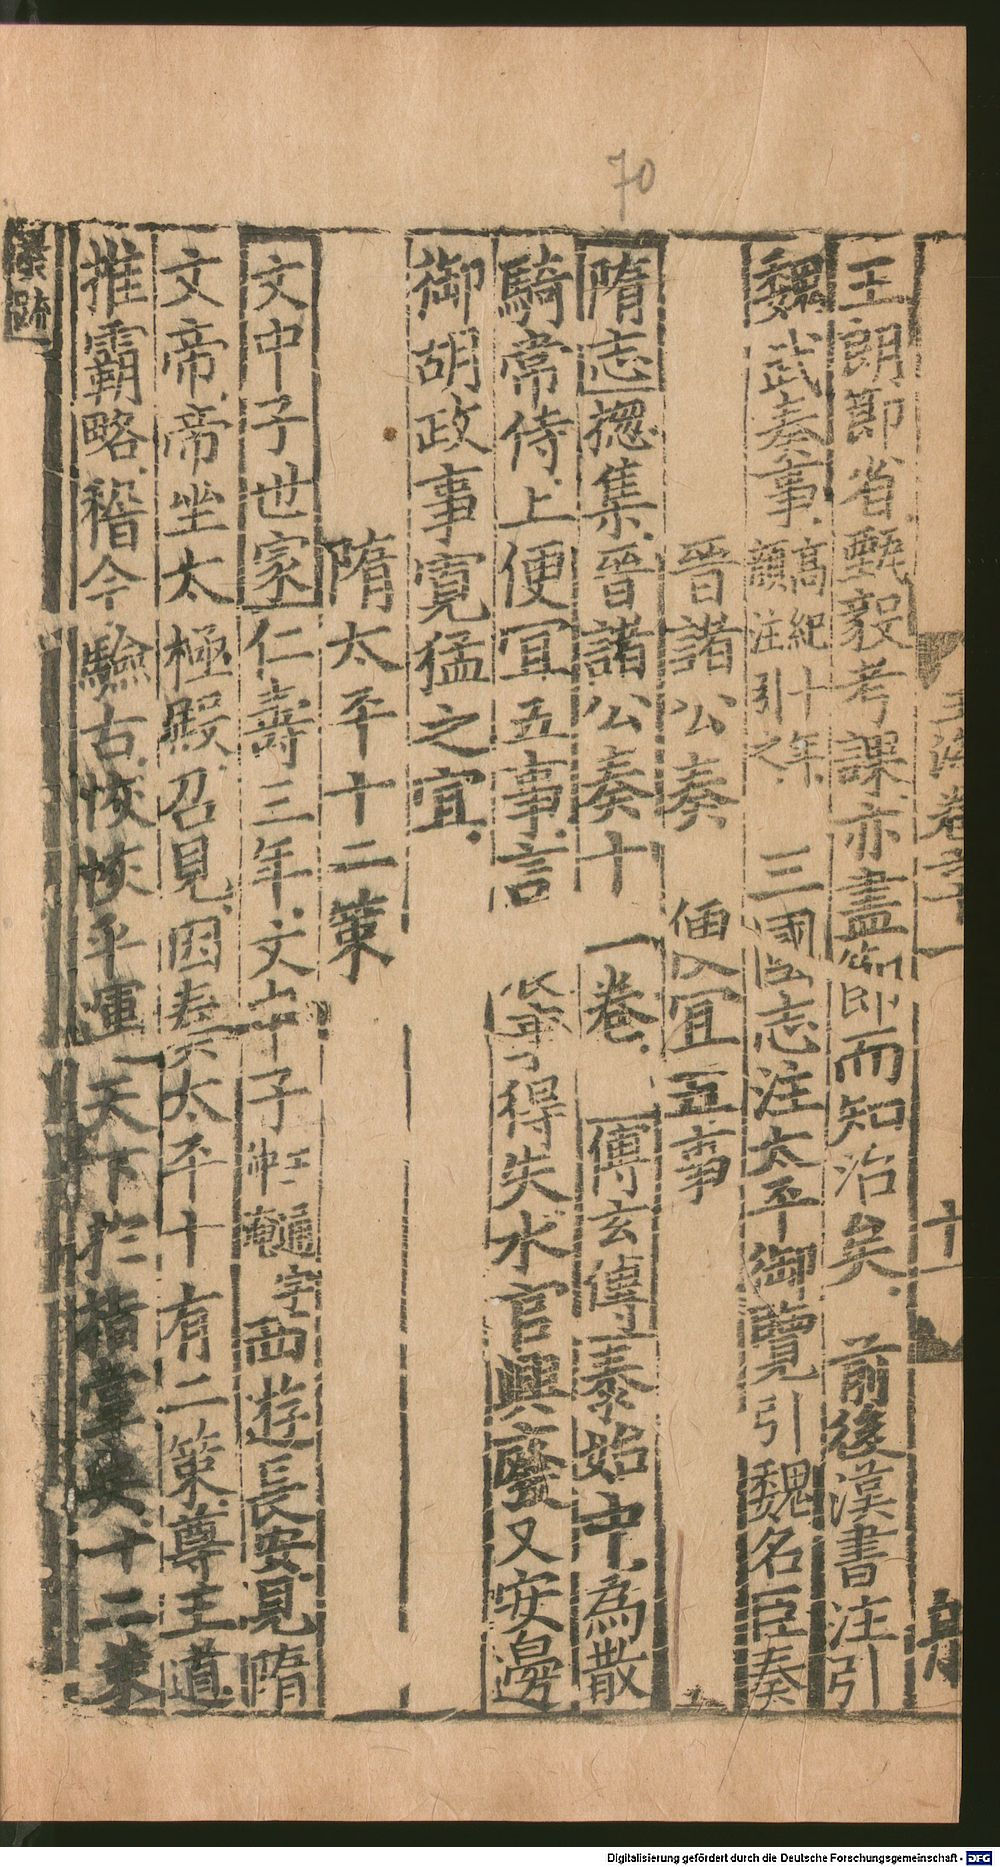 70
玉海卷六十一 十一
王朗節省甄毅考課亦盡節即而知治矣 前後漢書注引
魏武奏事高紀十年顏注引之 三國志注太平御覽引魏名臣奏
晉諸公奏 便宜五事
隋志揔集晉諸公奏十一卷 傅玄傳泰始中為散
騎常侍上便宜五事言 得失水官興廢又安邊
御胡政事寬猛之宜
隋太平十二策
文中子世家仁壽三年文中子王通字仲淹西遊長安見隋
文帝帝坐太極殿召見因奏太平十有二策尊王道
推霸略稽今驗古恢恢乎運天下於指掌矣十二策
奏疏
Digitalisierung gefördert durch die Deutsche Forschungsgemeinschaft - DFG